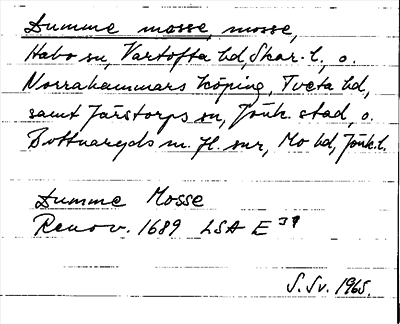 Dumme mosse, mosse,
Habo sn, Vartofta hd, Skar. l., o.
Norrahammars köping, Tveta hd,
samt Järstorps sn, Jönk. stad, o.
Bottnaryds m. fl. snr, Mo hd, Jönk. l.
Dumme Mosse
Renov. 1689 LSA E 39
S. Sv. 1965.